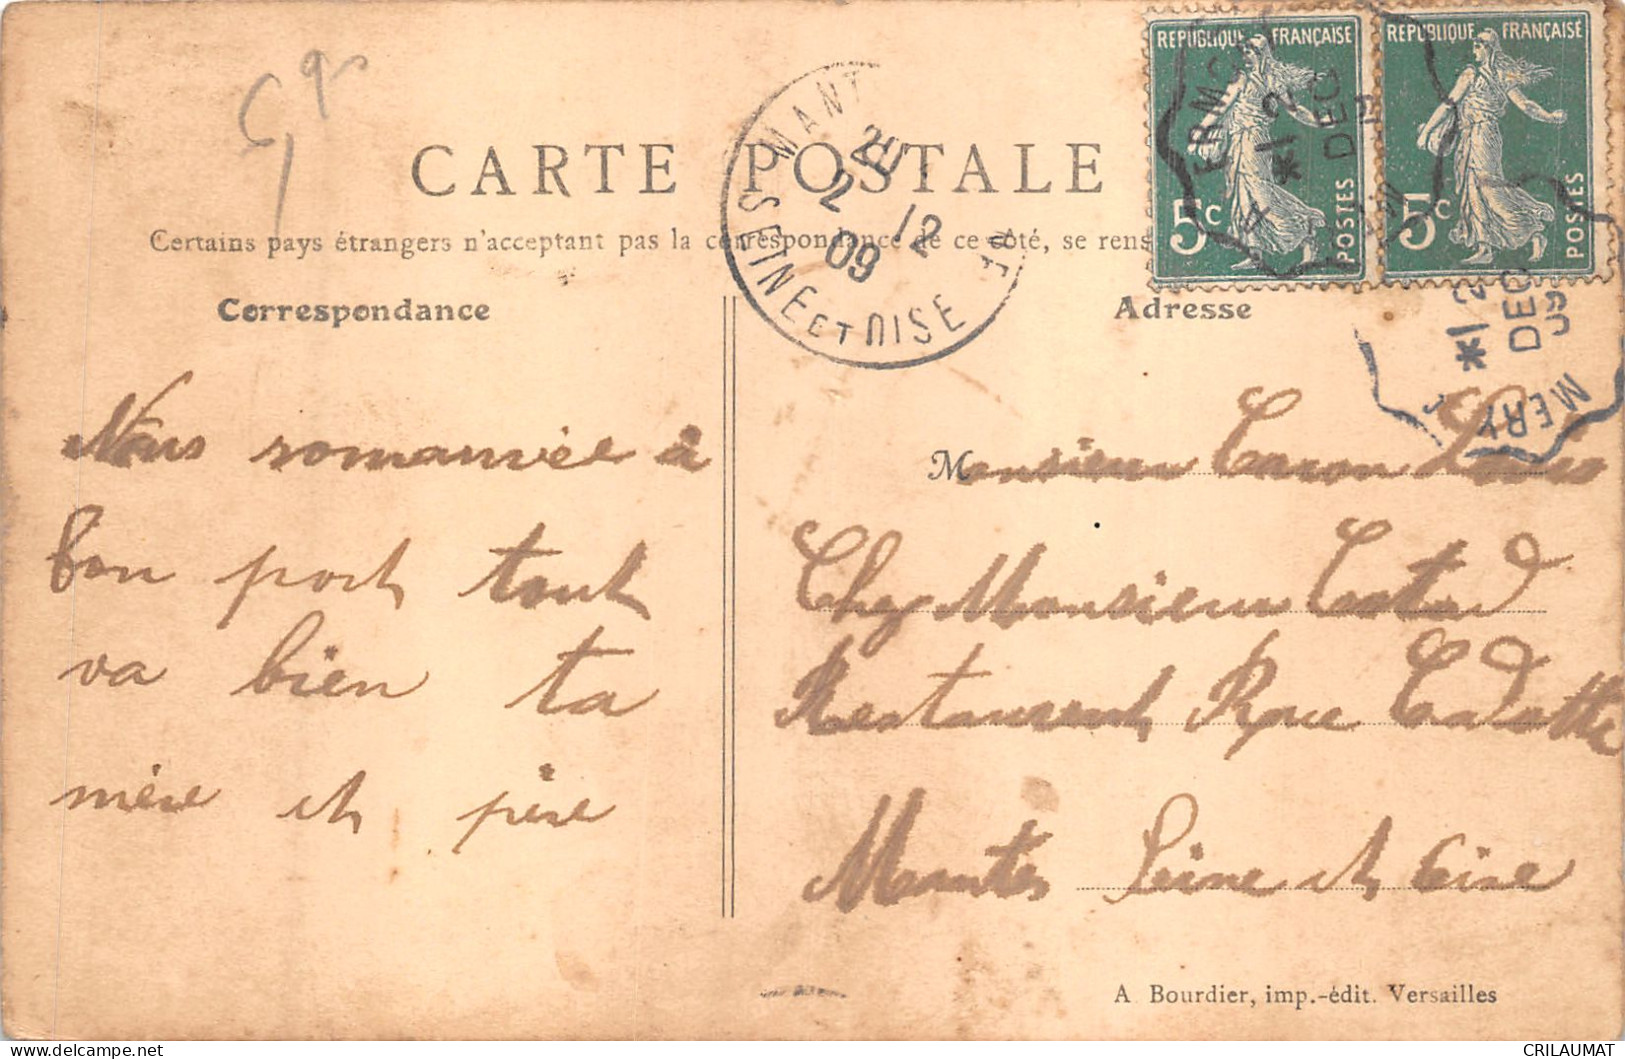 CARTE POSTALE
Certains pays étrangers n'acceptent pas la correspondance de ce côté, se rens
Correspondance
Adresse
REPUBLIQUE FRANÇAISE
5c
POSTES
REPUBLIQUE FRANÇAISE
5c
POSTES
MANT
20
2 12
09
SEINE ET OISE
ERMO
*1 2
DEC
*1 2
DEC
09
MERY
Nous
à
bon port tout
va bien ta
mère et père
Monsieur Caron Louis
Chez Monsieur
Restaurant Rue
Mantes Seine et Oise
A Bourdier, imp.-édit. Versailles
CRILAUMAT